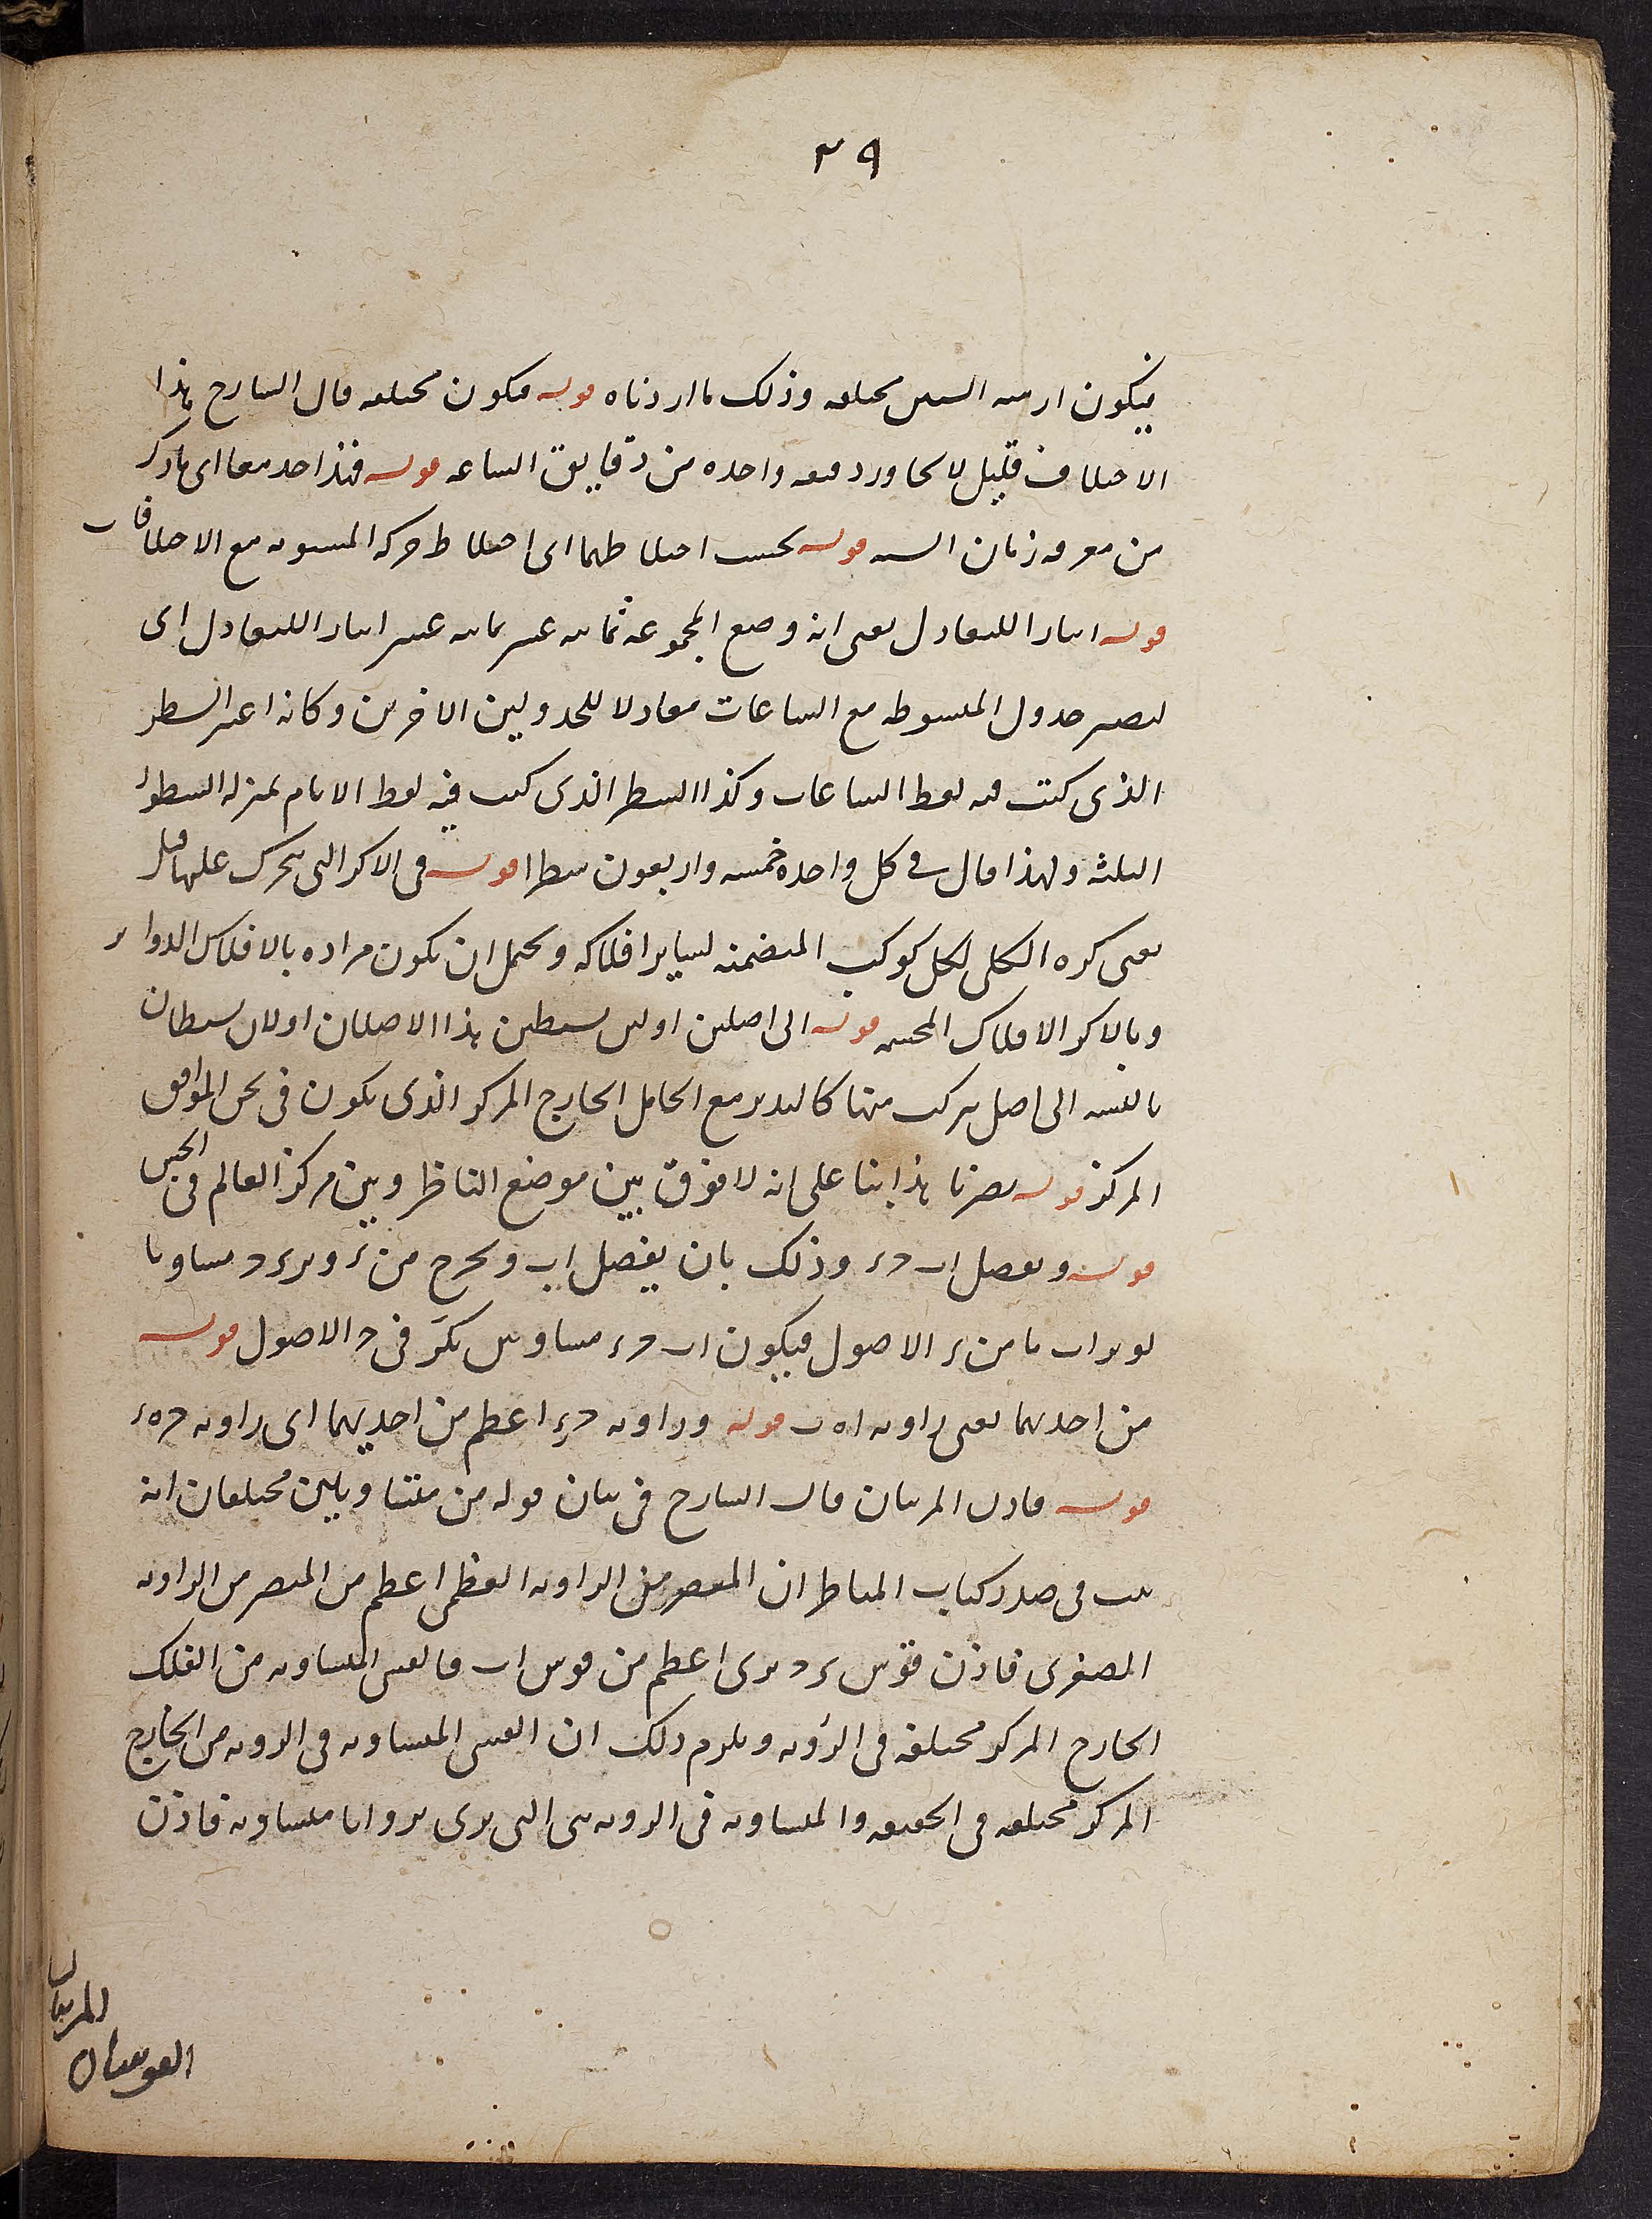 ٢٩
فيكون ازمنه السنين مختلفه وذلك ما اردناه قوله فيكون مختلفه قال الشارح هذا
الاختلاف قليل لا يجاوز دقيقه واحده من دقايق الساعه قوله فهذا احد معا اى هاذكر
من معرفه زمان السنه قوله بحسب اختلاطهما اى اختلاط حركه المستويه مع الاختلافات
قوله ايثارا للتعادل يعنى انه وضع المجموعه ثمانيه عشر ثمانيه عشر ايثارا للتعادل اى
ليصير جدول المبسوطه مع الساعات معادلا للجدولين الاخرين وكانه اعتبر السطر
الذى كتب فيه لفظ الساعات وكذا السطر الذى كتب فيه لفظ الايام بمنزله السطور
الثلثه ولهذا قال فى كل واحده خمسه واربعون سطرا قوله فى الاكر التى يتحرك عليها قيل
يعنى كره الكلى لكل كوكب المتضمنه لساير افلاكه ويحتمل ان يكون مراده بالافلاك الدواير
وبالاكر الافلاك المجسمه قوله الى اصلين اولين بسيطين هذا الاصلان اولان بسيطان
بالنسبه الى اصل يتركب منهما كالتدوير مع الحامل الخارج المركز الذى يكون فى ثخن الموافق
المركز قوله بصرنا هذا بنا على انه لا فرق بين موضع الناظر وبين مركز العالم فى الحس
قوله ونفصل اب د ر وذلك بان يفصل اب ويخرج من ر وتر ر د مساويا
لوتر اب بامن ر الاصول فيكون اب د ر مساويين بكر فى د الاصول قوله
من احديهما يعنى زاويه اه ب قوله وزاويه د ر اعظم من احديهما اى زاويه د ه ر
قوله فاذن المرئيان قال الشارح فى بيان قوله من متساويتين مختلفان انه
ثبت فى صدر كتاب المناظر ان المبصر من الزاويه العظمى اعظم من المبصر من الزاويه
الصغرى فاذن قوس ر د يرى اعظم من قوس اب فالقسى المتساويه من الفلك
الخارج المركز مختلفه فى الرؤيه ويلزم ذلك ان القسى المتساويه فى الرويه من الخارج
المركز مختلفه فى الحقيقه والمتساويه فى الرويه هى التى يرى بزوايا متساويه فاذن
المرئيان
القوسان